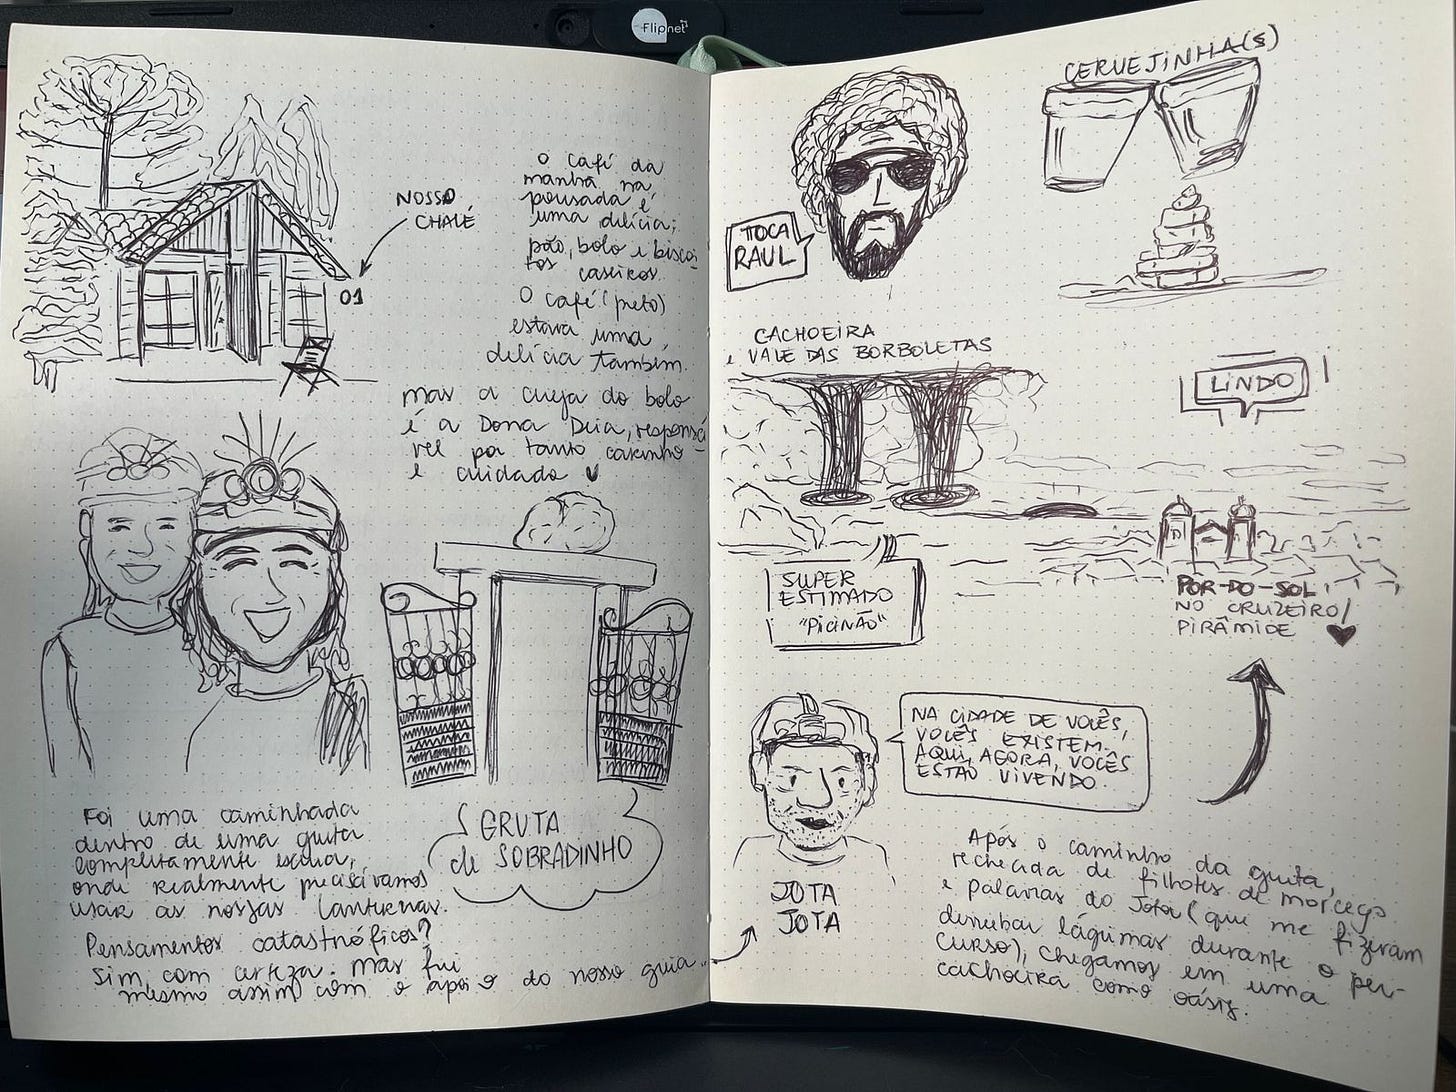 Flipnet
NOSSO
CHALÉ
01
O café da
manhã na
pousada é
uma delícia;
pão, bolo e biscoi
tos caseiros.
O café (preto)
estava uma
delícia também.
mas a cereja do bolo
é a Dona Deia, responsá
vel por tanto carinho
e cuidado
GRUTA
de SOBRADINHO
Foi uma caminhada
dentro de uma gruta
completamente escura,
onde realmente precisávamos
usar as nossas lanternas.
Pensamentos catastróficos?
Sim, com certeza. mas fui
mesmo assim com o apoio do nosso guia..
CERVEJINHA(S)
TOCA
RAUL
CACHOEIRA
e VALE DAS BORBOLETAS
LINDO
SUPER
ESTIMADO
"PICINÃO"
POR-DO-SOL
NO CRUZEIRO/
PIRÂMIDE
NA CIDADE DE VOCÊS,
VOCÊS EXISTEM.
AQUI, AGORA, VOCÊS
ESTÃO VIVENDO.
JOTA
JOTA
Após o caminho da gruta,
recheada de filhotes de morcego
e palavras do Jota (que me fizeram
derrubar lágrimas durante o per-
curso), chegamos em uma
cachoeira como oásis.